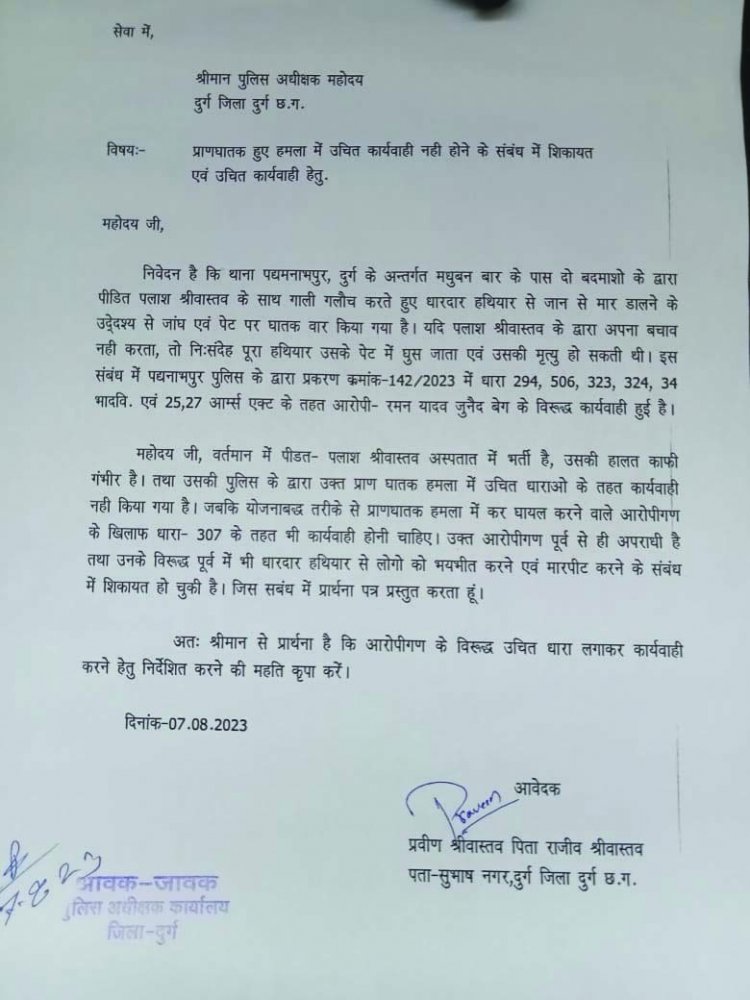 सेवा में,
श्रीमान पुलिस अधीक्षक महोदय
दुर्ग जिला दुर्ग छ.ग.
विषयः- प्राणघातक हुए हमला में उचित कार्यवाही नही होने के संबंध में शिकायत
एवं उचित कार्यवाही हेतु.
महोदय जी,
निवेदन है कि थाना पद्यमनाभपुर, दुर्ग के अन्तर्गत मधुबन बार के पास दो बदमाशो के द्वारा
पीडित पलाश श्रीवास्तव के साथ गाली गलौच करते हुए धारदार हथियार से जान से मार डालने के
उद्देश्य से जांघ एवं पेट पर घातक वार किया गया है। यदि पलाश श्रीवास्तव के द्वारा अपना बचाव
नही करता, तो निःसंदेह पूरा हथियार उसके पेट में घुस जाता एवं उसकी मृत्यु हो सकती थी। इस
संबंध में पद्यनाभपुर पुलिस के द्वारा प्रकरण क्रमांक-142/2023 में धारा 294, 506, 323, 324, 34
भादवि. एवं 25,27 आर्म्स एक्ट के तहत आरोपी- रमन यादव जुनैद बेग के विरूद्ध कार्यवाही हुई है।
महोदय जी, वर्तमान में पीडत- पलाश श्रीवास्तव अस्पतात में भर्ती है, उसकी हालत काफी
गंभीर है। तथा उसकी पुलिस के द्वारा उक्त प्राण घातक हमला में उचित धाराओ के तहत कार्यवाही
नही किया गया है। जबकि योजनाबद्ध तरीके से प्राणघातक हमला में कर घायल करने वाले आरोपीगण
के खिलाफ धारा- 307 के तहत भी कार्यवाही होनी चाहिए। उक्त आरोपीगण पूर्व से ही अपराधी है
तथा उनके विरूद्ध पूर्व में भी धारदार हथियार से लोगो को भयभीत करने एवं मारपीट करने के संबंध
में शिकायत हो चुकी है। जिस सबंध में प्रार्थना पत्र प्रस्तुत करता हूं।
अतः श्रीमान से प्रार्थना है कि आरोपीगण के विरूद्ध उचित धारा लगाकर कार्यवाही
करने हेतु निर्देशित करने की महति कृपा करें।
दिनांक-07.08.2023
Praveen
आवेदक
प्रवीण श्रीवास्तव पिता राजीव श्रीवास्तव
पता-सुभाष नगर,दुर्ग जिला दुर्ग छ.ग.
आवक-जावक
पुलिस अधीक्षक कार्यालय
जिला-दुर्ग